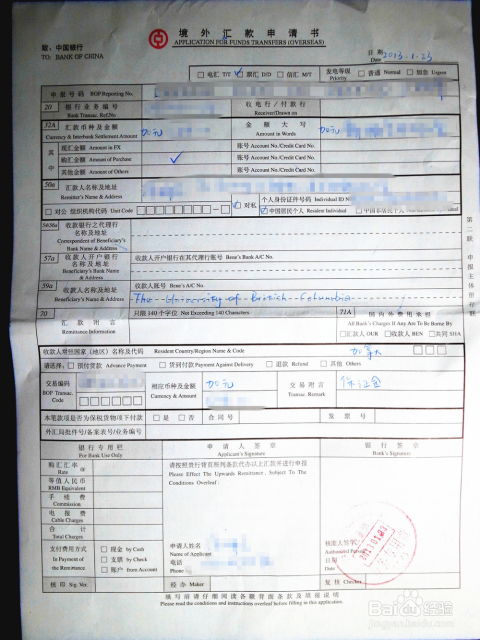 境外汇款申请书
APPLICATION FOR FUNDS TRANSFERS (OVERSEAS)
致：中国银行
TO: BANK OF CHINA
日期
Date 2013.1.23
□ 电汇 T/T □ 票汇 D/D □ 信汇 M/T
发电等级 Priority
□ 普通 Normal □ 加急 Urgent
申报号码 BOP Reporting No.
20 银行业务编号
Bank Transac. Ref.No
收电行/付款行
Receiver/Drawn on
32A 汇款币种及金额
Currency & Interbank Settlement Amount
加元
金额大写
Amount in Words
加元
其中
现汇金额 Amount in FX
账号 Account No./Credit Card No.
购汇金额 Amount of Purchase
账号 Account No./Credit Card No.
其他金额 Amount of Others
账号 Account No./Credit Card No.
50a 汇款人名称及地址
Remitter's Name & Address
个人身份证件号码 Individual ID N
□ 对公 组织机构代码 Unit Code
对私
中国居民个人 Resident Individual
收款银行之代理行
名称及地址
Correspondent of Beneficiary's
Bank Name & Address
57a 收款人开户银行
名称及地址
Beneficiary's Bank Name
& Address
收款人开户银行在其代理行账号 Bene's Bank A/C No.
59a 收款人名称及地址
Beneficiary's Name & Address
收款人账号 Bene's A/C No.
The University of British Columbia
70 汇款附言
Remittance Information
只限140个字位 Not Exceeding 140 Characters
71A 国内外费用承担
All Bank's Charges If Any Are To Be Borne By
□ 汇款人 OUR □ 收款人 BEN □ 共同 SHA
收款人常驻国家（地区）名称及代码 Resident Country/Region Name & Code
加拿大
请选择：□ 预付货款 Advance Payment □ 货到付款 Payment Against Delivery □ 退款 Refund □ 其他 Others
交易编码
BOP Transac.
Code
相应币种及金额
Currency & Amount
加元
交易附言
Transac. Remark
保证金
本笔款项是否为保税货物项下付款 □ 是 □ 否 合同号 发票号
外汇局批件号/备案表号/业务编号
银行专用栏
For Bank Use Only
申请人签章
Applicant's Signature
银行签章
Bank's Signature
购汇汇率
Rate @
请按照贵行背页所列条款代办以上汇款并进行申报
Please Effect The Upwards Remittance, Subject To The
Conditions Overleaf :
等值人民币
RMB Equivalent
手续费
Commission
电报费
Cable Charges
合计
Total Charges
支付费用方式
In Payment of
the Remittance
□ 现金 by Cash
□ 支票 by Check
□ 账户 from Account
申请人姓名
Name of Applicant
电话
Phone
核准人签字
Authorized Person
日期
Date
核印 Sig. Ver. 经办 Maker 复核 Checker
填写前请仔细阅读各联背面条款及填报说明
Please read the conditions and instructions overleaf before filling in this application.
第二联 申报主体留存联
Baidu 经验
jingyan.baidu.com